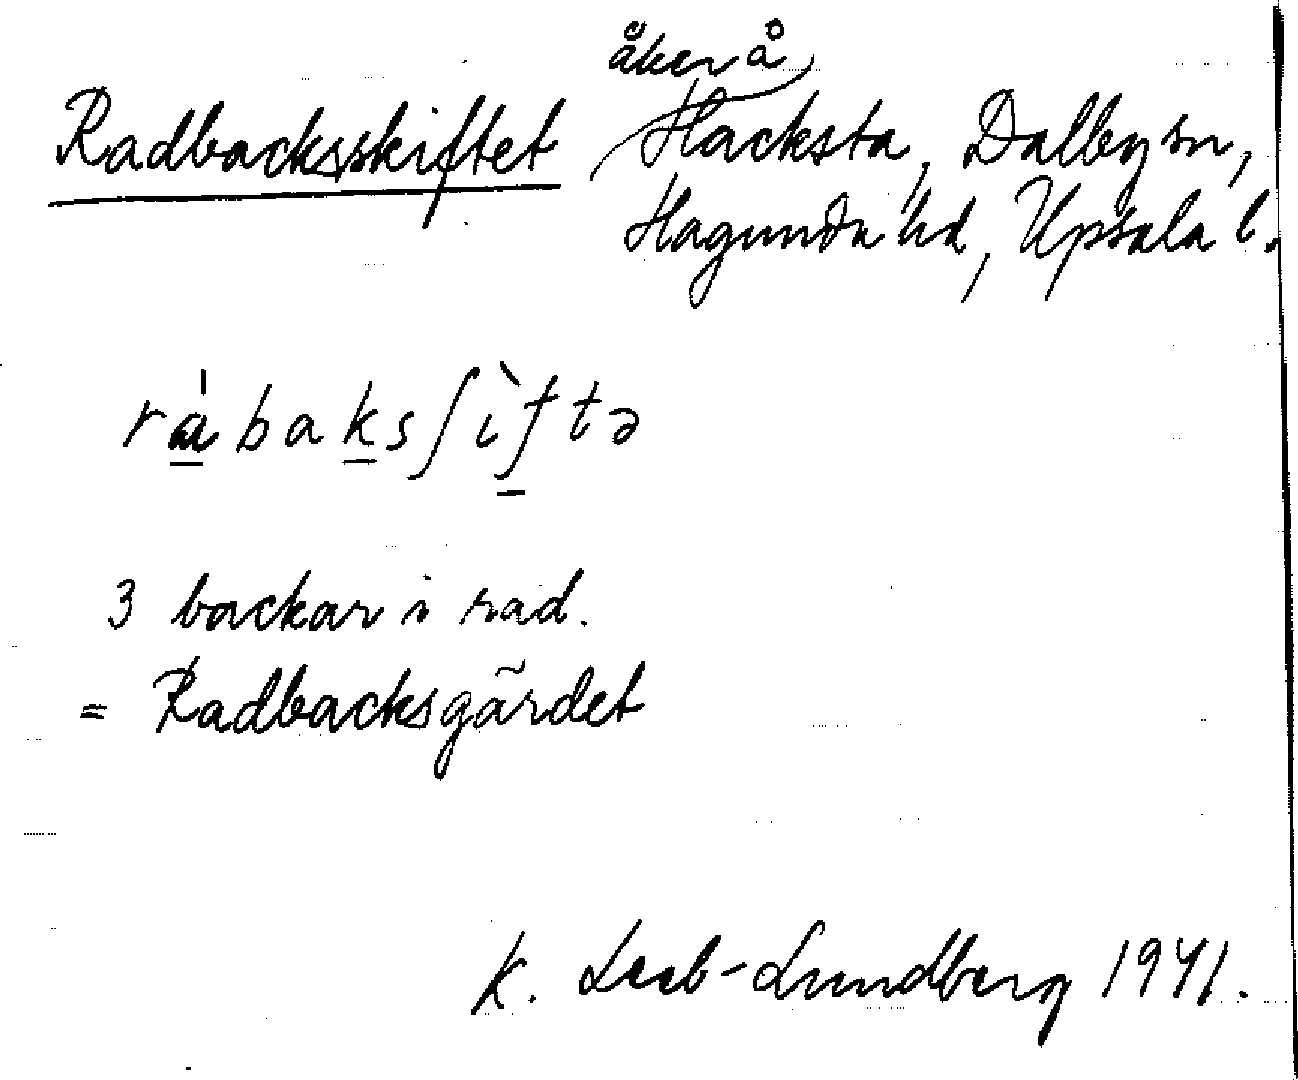 åker å
Radbacksskiftet Hacksta, Dalby sn,
Hagunda hd, Upsala l.
rábaksʃìftə
3 backar i rad.
= Radbacksgärdet
K. Leeb-Lundberg 1941.